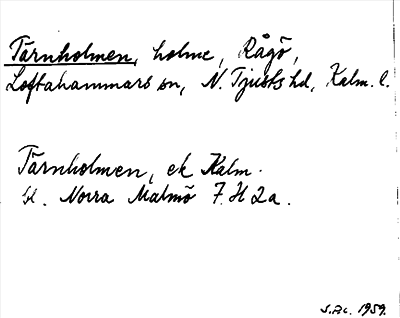 Tärnholmen, holme, Rågö,
Loftahammars sn, N. Tjusts hd, Kalm. l.
Tärnholmen, ek Kalm.
bl. Norra Malmö 7 H 2a.
1959.